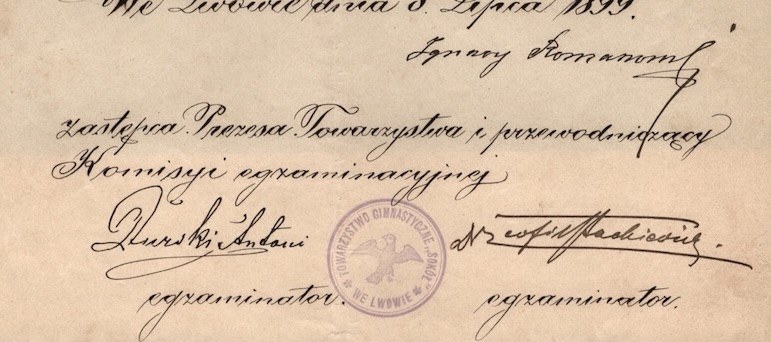 We Lwowie dnia 8. Lipca 1899.
Ignacy
Zastępca Prezesa Towarzystwa i przewodniczący
Komisyi egzaminacyjnej
Durski Antoni
Dr Teofil Stachiewicz
TOWARZYSTWO GIMNASTYCZNE „SOKÓŁ”
WE LWOWIE
egzaminator. egzaminator.